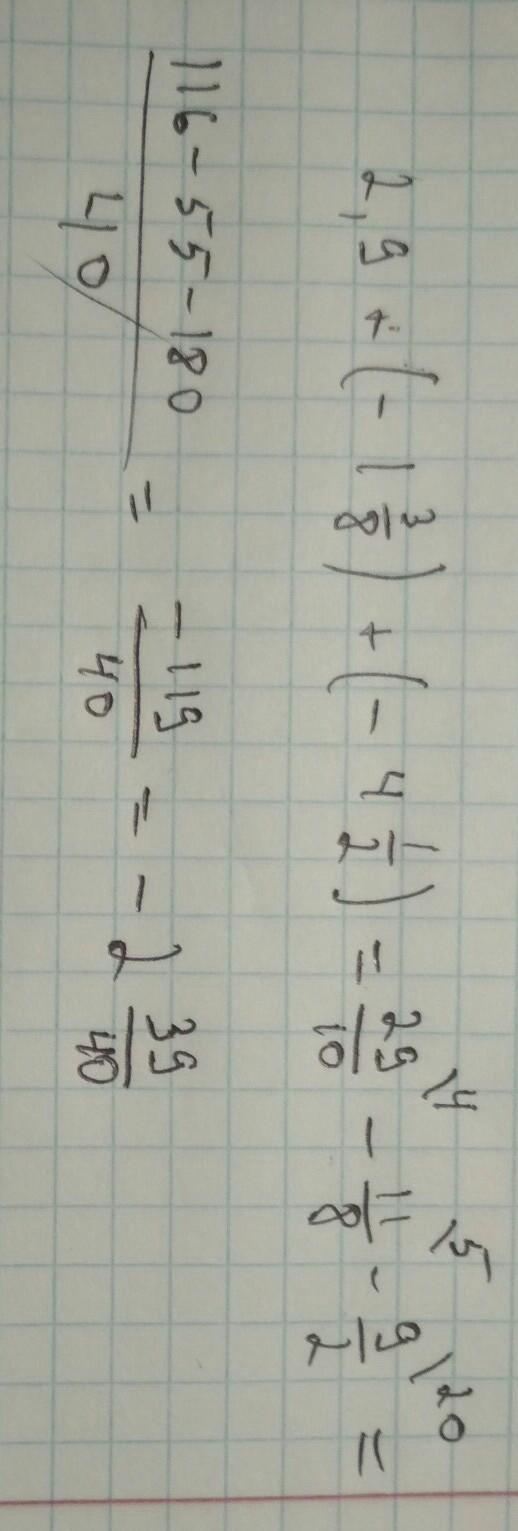 2,9 + (- 1 3/8) + (- 4 1/2) = 29/10 \4 - 11/8 \5 - 9/2 \20 =
116 - 55 - 180 / 40 = -119/40 = - 2 39/40